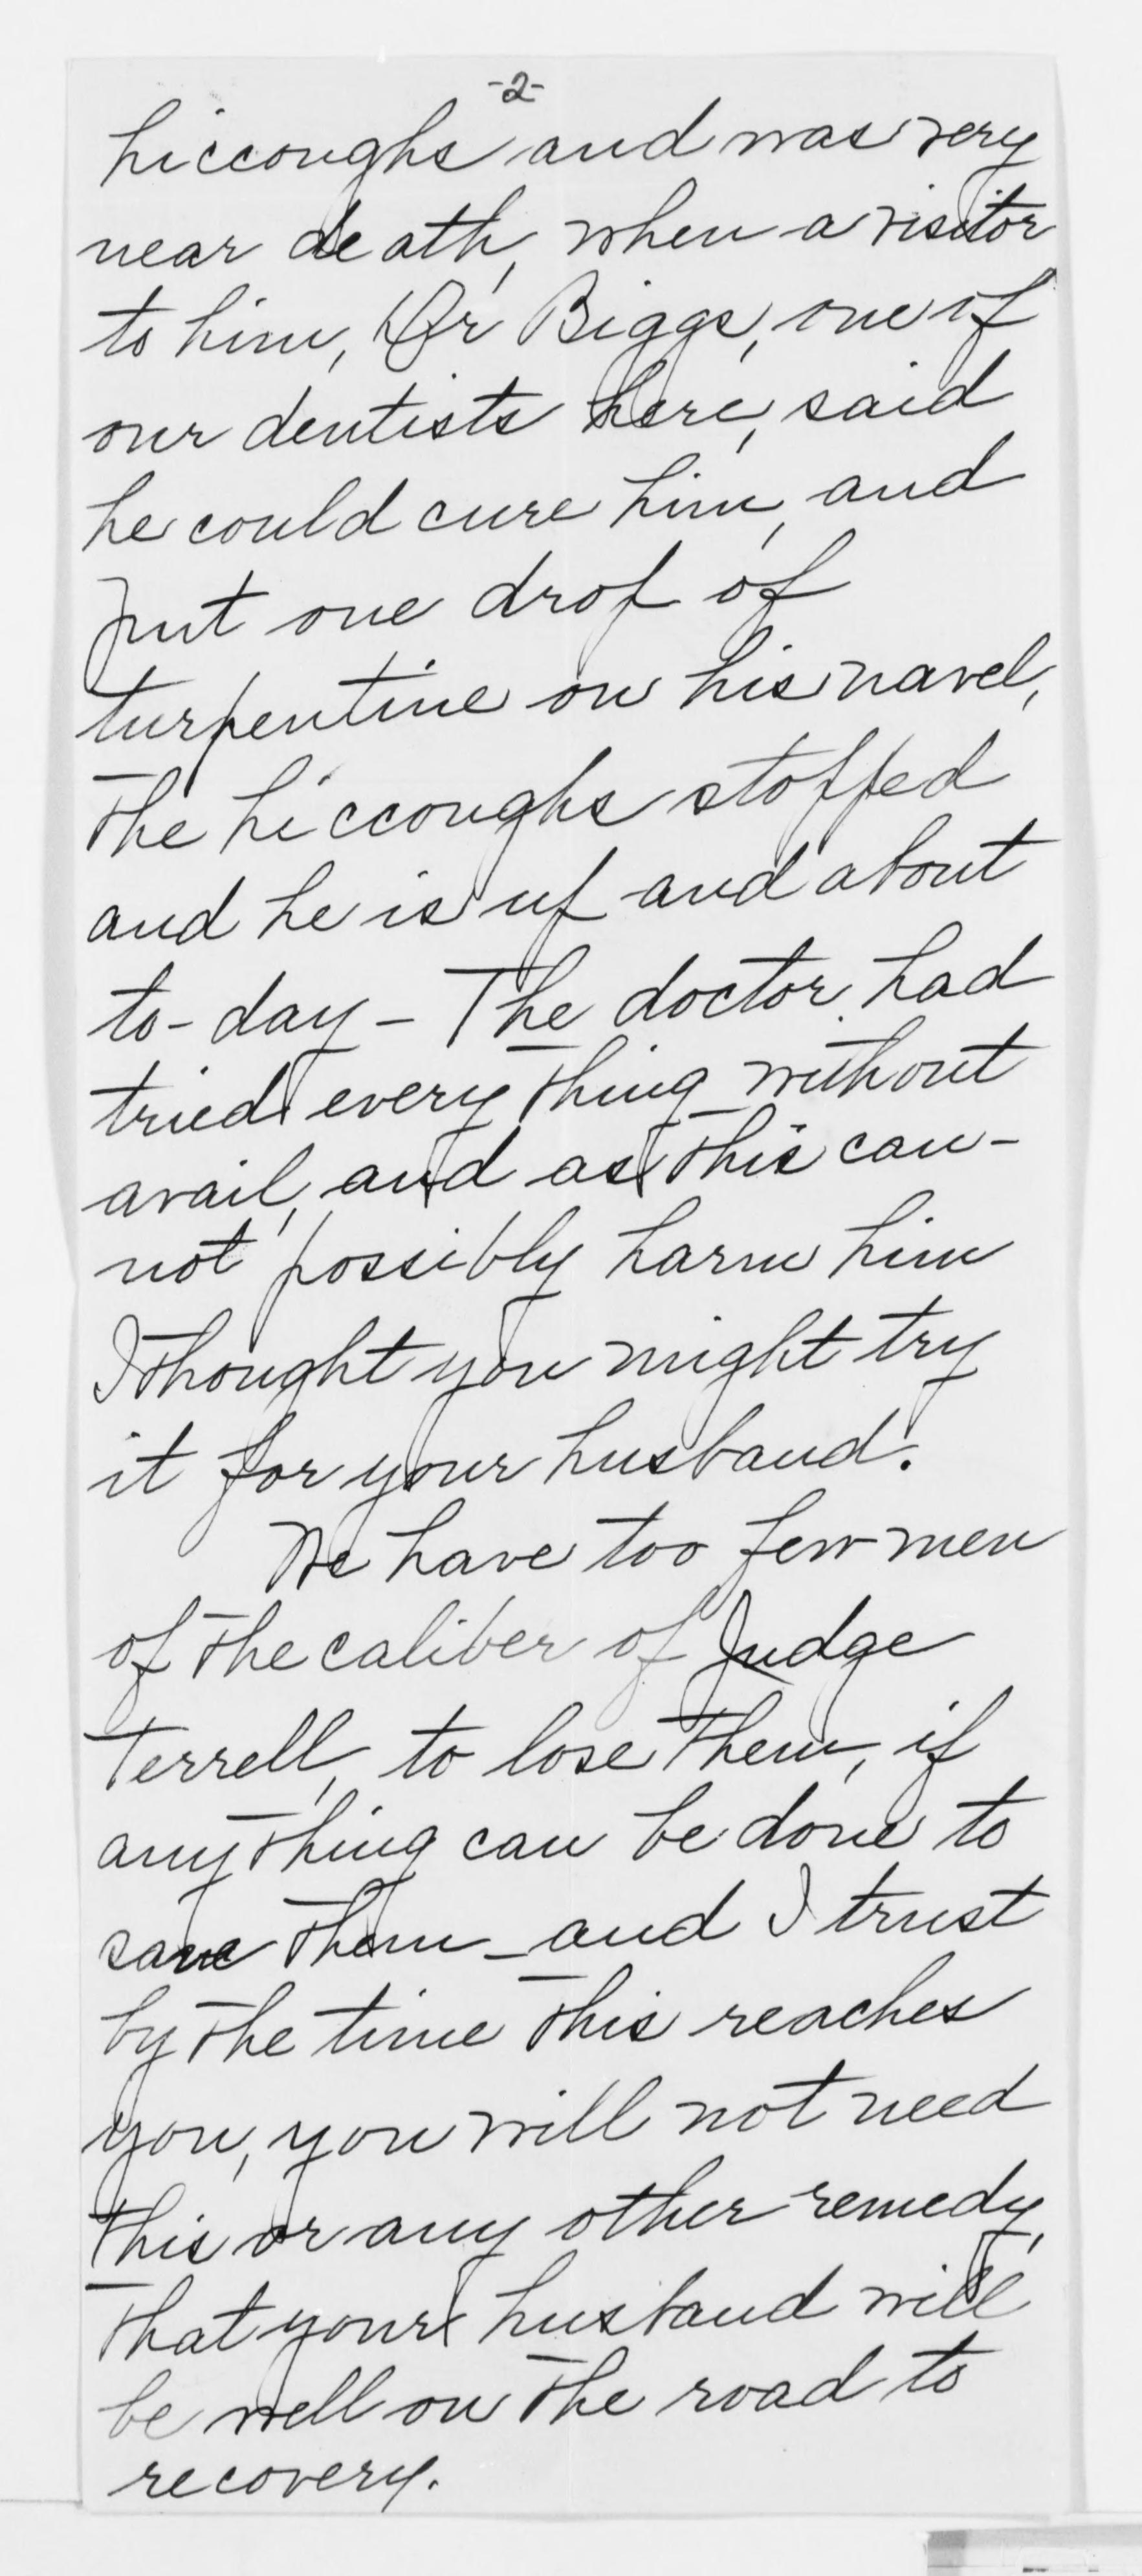 -2-
hiccoughs and was very
near death, when a visitor
to him, Dr Biggs, one of
our dentists here, said
he could cure him, and
put one drop of
turpentine on his navel,
the hiccoughs stopped
and he is up and about
to-day - The doctor had
tried every thing without
avail, and as this can-
not possibly harm him
I thought you might try
it for your husband.
We have too few men
of the caliber of Judge
Terrell, to lose them, if
anything can be done to
save them - and I trust
by the time this reaches
you, you will not need
this or any other remedy,
that your husband will
be well on the road to
recovery.